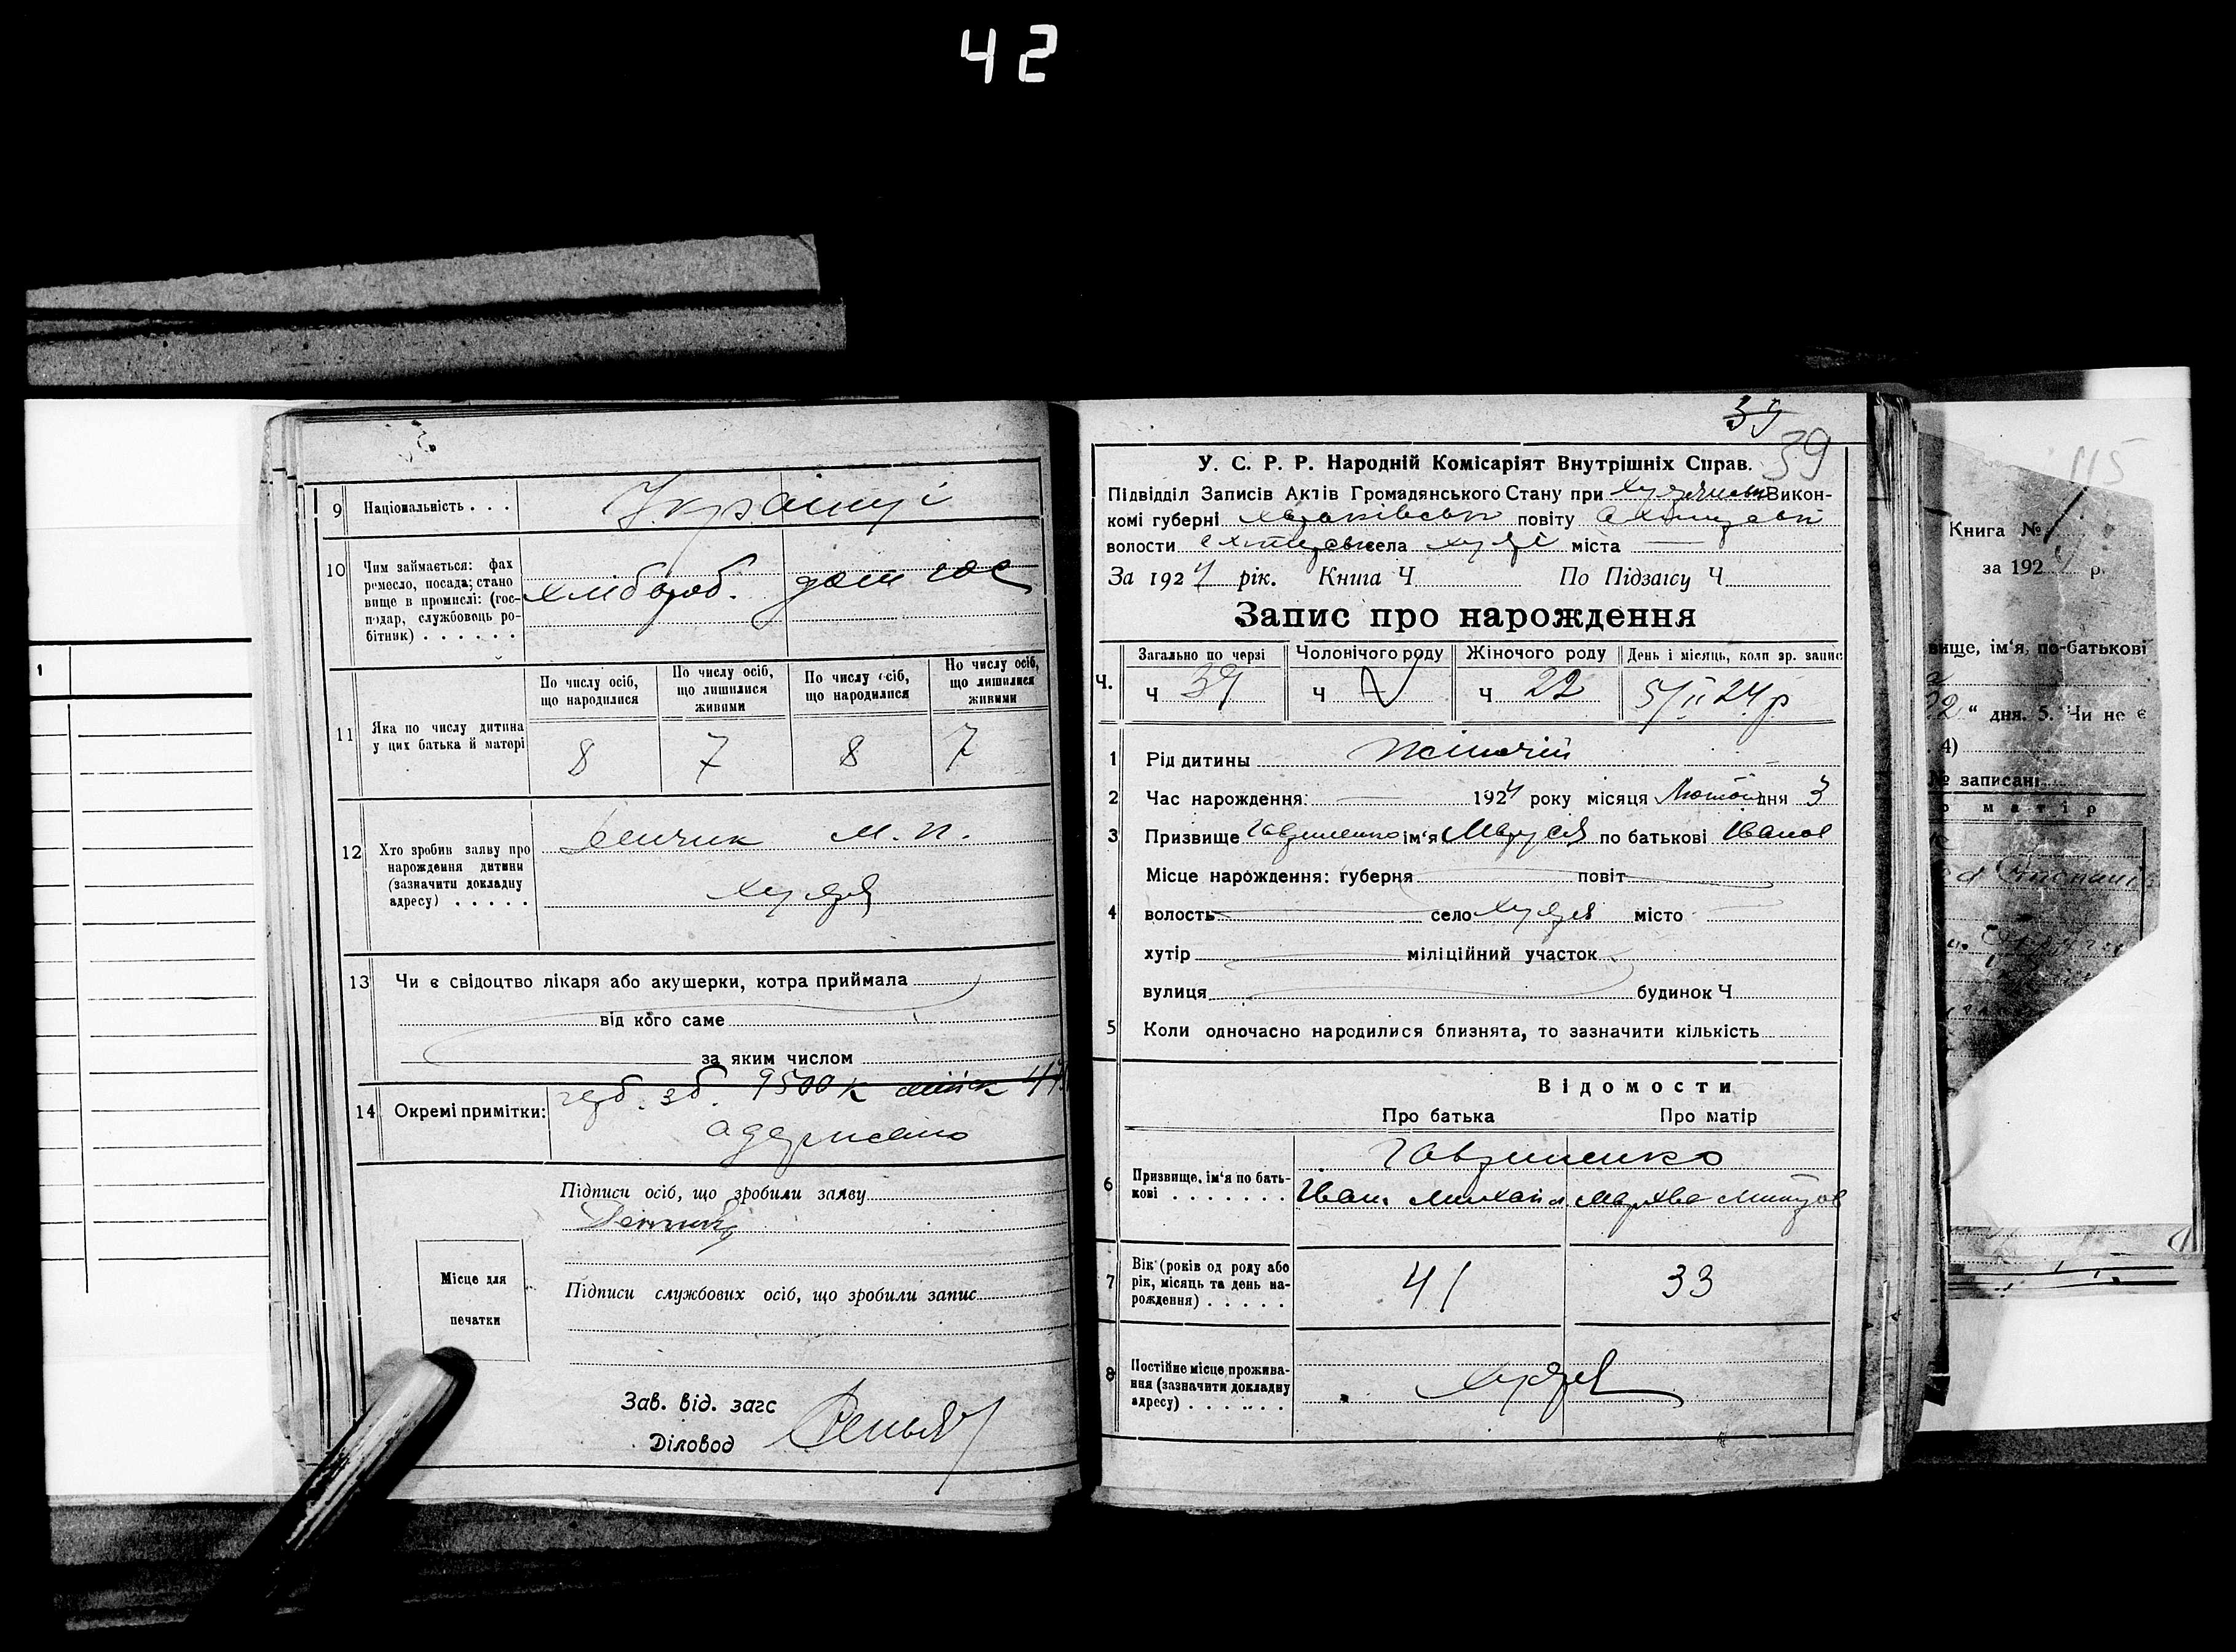 42
9 Національність . . . Українці
10 Чим займається: фах
ремесло, посада; стано
вище в промислі: (гос-
подар, службовець ро-
бітник) . . . . . .
хлібороб. дом гос
По числу осіб, що народилися
По числу осіб, що лишилися живими
По числу осіб, що народилися
По числу осіб, що лишилися живими
11 Яка по числу дитина
у цих батька й матері
8 7 8 7
12 Хто зробив заяву про
нарождення дитини
(зазначити докладну
адресу) . . . . .
М. П.
13 Чи є свідоцтво лікаря або акушерки, котра приймала
від кого саме
за яким числом
14 Окремі примітки: герб. зб. 9500 к
одержано
Підписи осіб, що зробили заяву
Місце для
печатки
Підписи службових осіб, що зробили запис
Зав. від. загс
Діловод
39
39
У. С. Р. Р. Народній Комісаріят Внутрішніх Справ.
Підвідділ Записів Актів Громадянського Стану при Викон-
комі губерні Харківськ повіту Охтирськ
волости Охтирськ села міста —
За 1924 рік. Книга Ч По Підзагсу Ч
Запис про нарождення
Ч. Загально по черзі Чолонічого роду Жіночого роду День і місяць, коли зр. запис
Ч 39 Ч Ч 22 5/II 24 р
1 Рід дитины Жіночій
2 Час нарождення: — 1924 року місяця Лютого дня 3
3 Призвище Гавриленко ім‘я Маруся по батькові Іванов
Місце нарождення: губерня повіт
4 волость село місто
хутір міліційний участок
вулиця будинок Ч
5 Коли одночасно народилися близнята, то зазначити кількість
Відомости
Про батька Про матір
Гавриленко
6 Призвище, ім‘я по бать-
кові . . . . . . .
Іван. Михайл. Мархва
7 Вік (років од роду або
рік, місяць та день на-
рождення) . . . . .
41 33
8 Постійне місце прожива-
ння (зазначити докладну
адресу) . . . . . .
115
Книга №
за 1924 р.
вище, ім‘я, по-батькові
“ дня. 5. Чи не є
4)
№ записані
матір
1